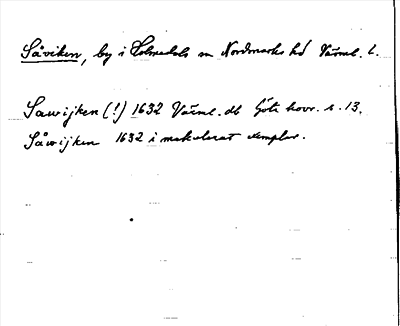 Såviken, by i Holmedals sn Nordmarks hd Värml. l.
Sawijken (!) 1632 Värml. db Göta hovr. s. 13.
Såwijken 1632 i makulerat exemplar.